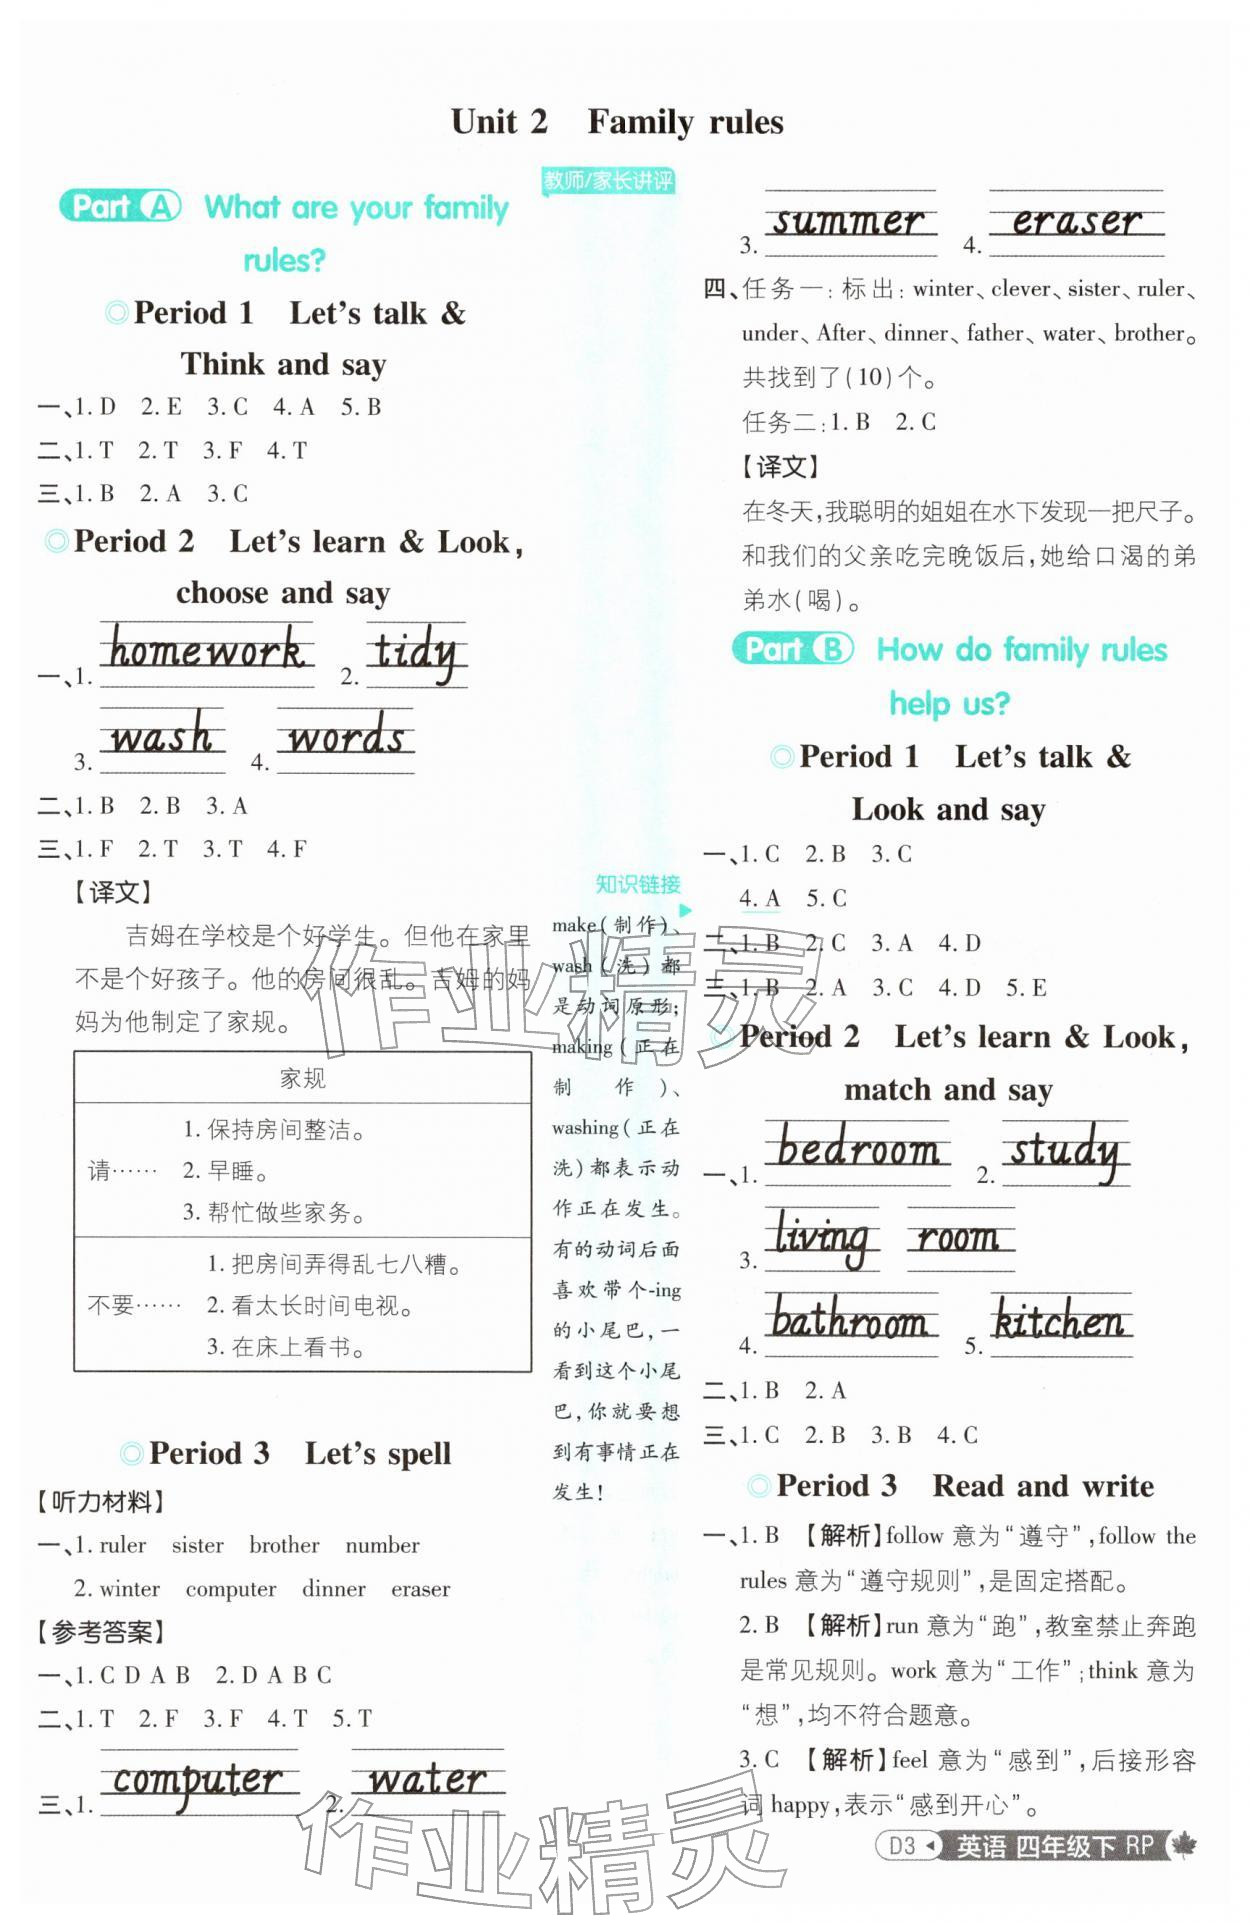 Unit 2 Family rules
Part A What are your family
rules?
Period 1 Let's talk &
Think and say
一、1. D 2. E 3. C 4. A 5. B
二、1. T 2. T 3. F 4. T
三、1. B 2. A 3. C
Period 2 Let's learn & Look,
choose and say
一、1. homework 2. tidy
3. wash 4. words
二、1. B 2. B 3. A
三、1. F 2. T 3. T 4. F
【译文】
吉姆在学校是个好学生。但他在家里
不是个好孩子。他的房间很乱。吉姆的妈
妈为他制定了家规。
家规
请…… 1. 保持房间整洁。
2. 早睡。
3. 帮忙做些家务。
不要…… 1. 把房间弄得乱七八糟。
2. 看太长时间电视。
3. 在床上看书。
Period 3 Let's spell
【听力材料】
一、1. ruler sister brother number
2. winter computer dinner eraser
【参考答案】
一、1. C D A B 2. D A B C
二、1. T 2. F 3. F 4. T 5. T
三、1. computer 2. water
教师/家长讲评
知识链接
make(制作)、
wash(洗)都
是动词原形;
making(正在
制作)、
washing(正在
洗)都表示动
作正在发生。
有的动词后面
喜欢带个-ing
的小尾巴,一
看到这个小尾
巴,你就要想
到有事情正在
发生!
3. summer 4. eraser
四、任务一:标出:winter、clever、sister、ruler、
under、After、dinner、father、water、brother。
共找到了(10)个。
任务二:1. B 2. C
【译文】
在冬天,我聪明的姐姐在水下发现一把尺子。
和我们的父亲吃完晚饭后,她给口渴的弟
弟水(喝)。
Part B How do family rules
help us?
Period 1 Let's talk &
Look and say
一、1. C 2. B 3. C
4. A 5. C
二、1. B 2. C 3. A 4. D
三、1. B 2. A 3. C 4. D 5. E
Period 2 Let's learn & Look,
match and say
一、1. bedroom 2. study
3. living room
4. bathroom 5. kitchen
二、1. B 2. A
三、1. C 2. B 3. B 4. C
Period 3 Read and write
一、1. B 【解析】follow 意为“遵守”,follow the
rules 意为“遵守规则”,是固定搭配。
2. B 【解析】run 意为“跑”,教室禁止奔跑
是常见规则。work 意为“工作”;think 意为
“想”,均不符合题意。
3. C 【解析】feel 意为“感到”,后接形容
词 happy,表示“感到开心”。
D3 英语 四年级下 RP
作业精灵
作业精灵